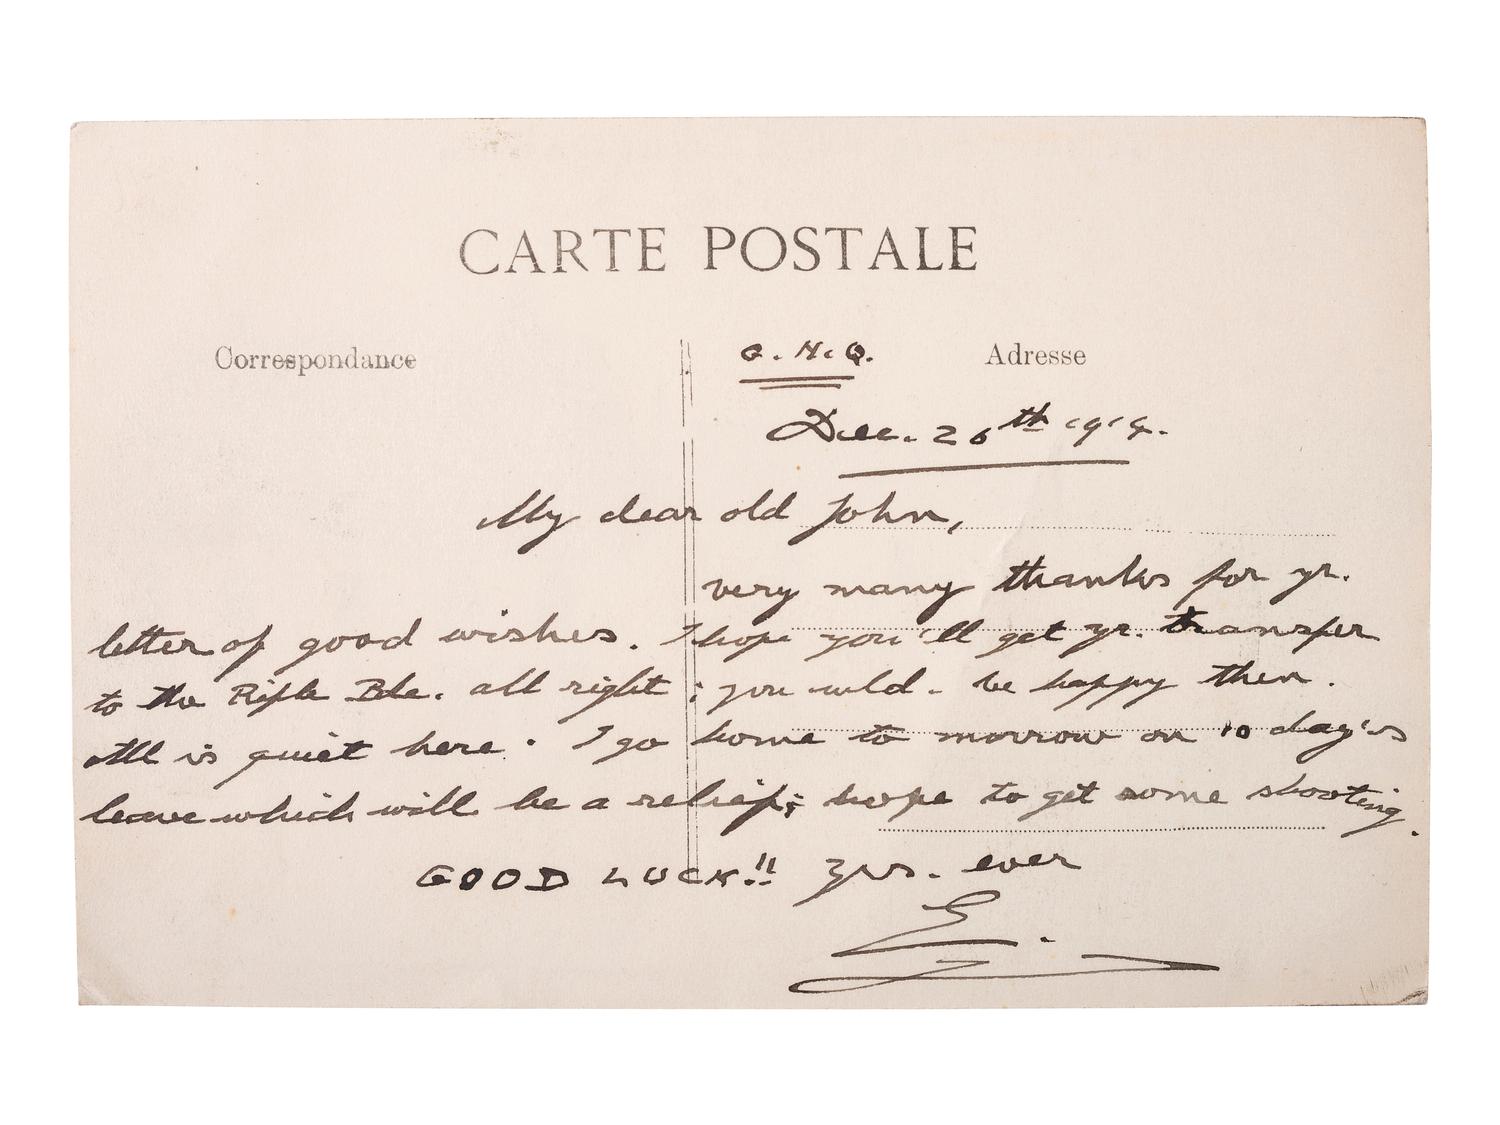 CARTE POSTALE
Correspondance
G.H.Q.
Adresse
Dec. 26th 1914.
My dear old John,
very many thanks for yr.
letter of good wishes. I hope you'll get yr. transfer
to the Rifle Bde. all right; you wld. be happy then.
All is quiet here. I go home to morrow on 10 day's
leave which will be a relief; hope to get some shooting.
GOOD LUCK!! Yrs. ever
E.